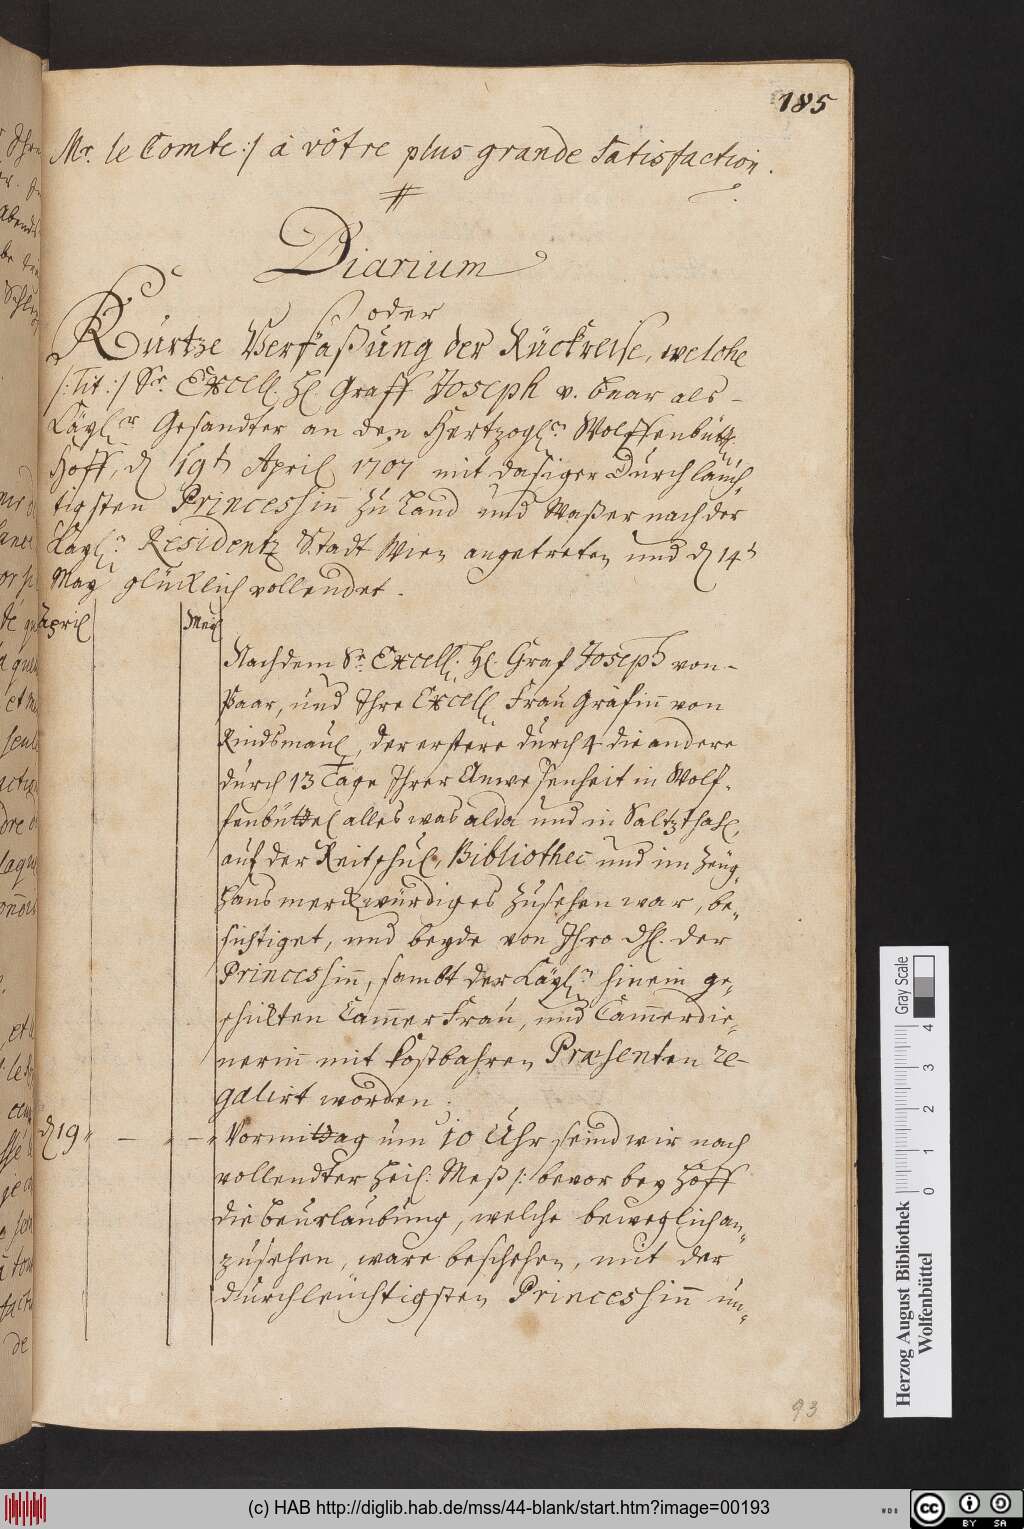 185
Mr. le Comte :/ à vôtre plus grande Satisfaction.
Diarium
oder
Kürtze Verfaßung der Rückreise, welche
/: Tit :/ Sr. Excell. H. Graff Joseph v. Paar als
Kaÿl.r Gesandter an den Hertzogl.n Wolffenbütt.
Hoff, d 19t April 1707 mit dasiger Durchläuch-
tigsten Princessinn zu Land und Waßer nach der
Kaÿl.n Residentz Stadt Wien angetreten und d 14t
May glücklich vollendet.
April Maij
Nachdem Sr. Excell. H. Graf Joseph von
Paar, und Ihre Excell. Frau Gräfinn von
Rindsmaul, der erstere durch 4 die andere
durch 13 Täge Ihrer Anwesenheit in Wolf-
fenbüttel alles was alda und in Saltzthahl,
auf der Reitschul, Bibliothec und im Zeug-
haus merckwürdiges zusehen war, be-
sichtiget, und beyde von Ihro Dhl. der
Princessinn, sambt der Kaÿl.n hinein ge-
schickten Cammer Frau, und Cammerdie-
nerin mit kostbahren Præsenten re-
galirt worden.
d 19 Vormittag um 10 Uhr seind wir nach
vollendter Heil: Meß /: bevor bey Hoff
die Beurlaubung, welche beweglich an-
zusehen, ware beschehen, mit der
Durchleuchtigsten Princessinn un-
93
Herzog August Bibliothek
Wolfenbüttel
0 1 2 3 4
Gray Scale
(c) HAB http://diglib.hab.de/mss/44-blank/start.htm?image=00193
cc BY SA